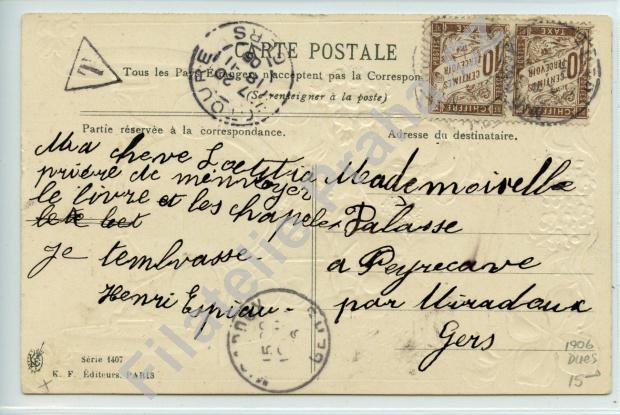 CARTE POSTALE
Tous les Pays Étrangers n'acceptent pas la Correspon
(Se renseigner à la poste)
Partie réservée à la correspondance.
Adresse du destinataire.
T
10 CENTIMES A PERCEVOIR
CHIFFRE TAXE
10 CENTIMES A PERCEVOIR
CHIFFRE TAXE
Ma chere Lœtitia
prière de m'envoyer
le livre et les chapelex
je tembrasse.
Henri Espiau
Mademoiselle
Palasse
a Peyrecave
par Miradoux
Gers
MIRADOUX
GERS
1906
DUES
15-
Série 1407
K. F. Éditeurs, PARIS
Filatelie Praha.cz